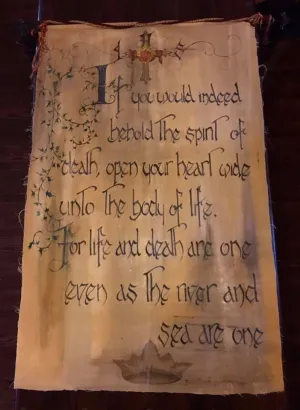 If you would indeed
behold the spirit of
death, open your heart wide
unto the body of life.
For life and death are one
even as the river and
sea are one